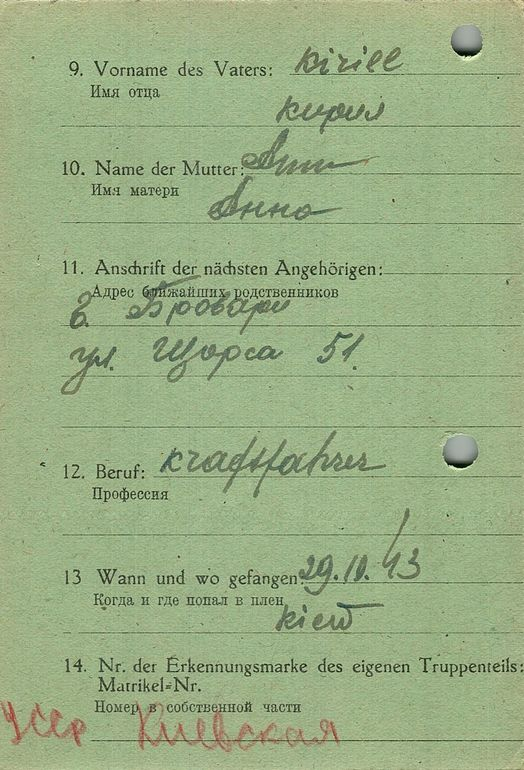 9. Vorname des Vaters: Kirill
Имя отца
Кирил
10. Name der Mutter: Ann
Имя матери
Анна
11. Anschrift der nächsten Angehörigen:
Адрес ближайших родственников
Бровари
ул. Щорса 51.
12. Beruf: Kraftfahrer
Профессия
13 Wann und wo gefangen: 29.10.43
Когда и где попал в плен
Kiew
14. Nr. der Erkennungsmarke des eigenen Truppenteils:
Matrikel-Nr.
Номер в собственной части
Усср Киевская